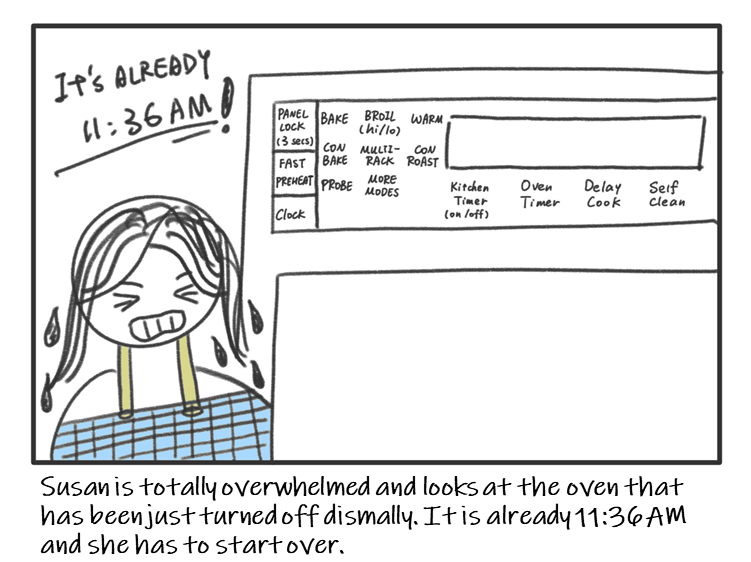 It's ALREADY
11:36 AM!
PANEL
LOCK
(3 secs)
FAST
PREHEAT
Clock
BAKE
BROIL
(hi/lo)
WARM
CON
BAKE
MULTI-
RACK
CON
ROAST
PROBE
MORE
MODES
Kitchen
Timer
(on/off)
Oven
Timer
Delay
Cook
Self
Clean
Susan is totally overwhelmed and looks at the oven that
has been just turned off dismally. It is already 11:36 AM
and she has to start over.